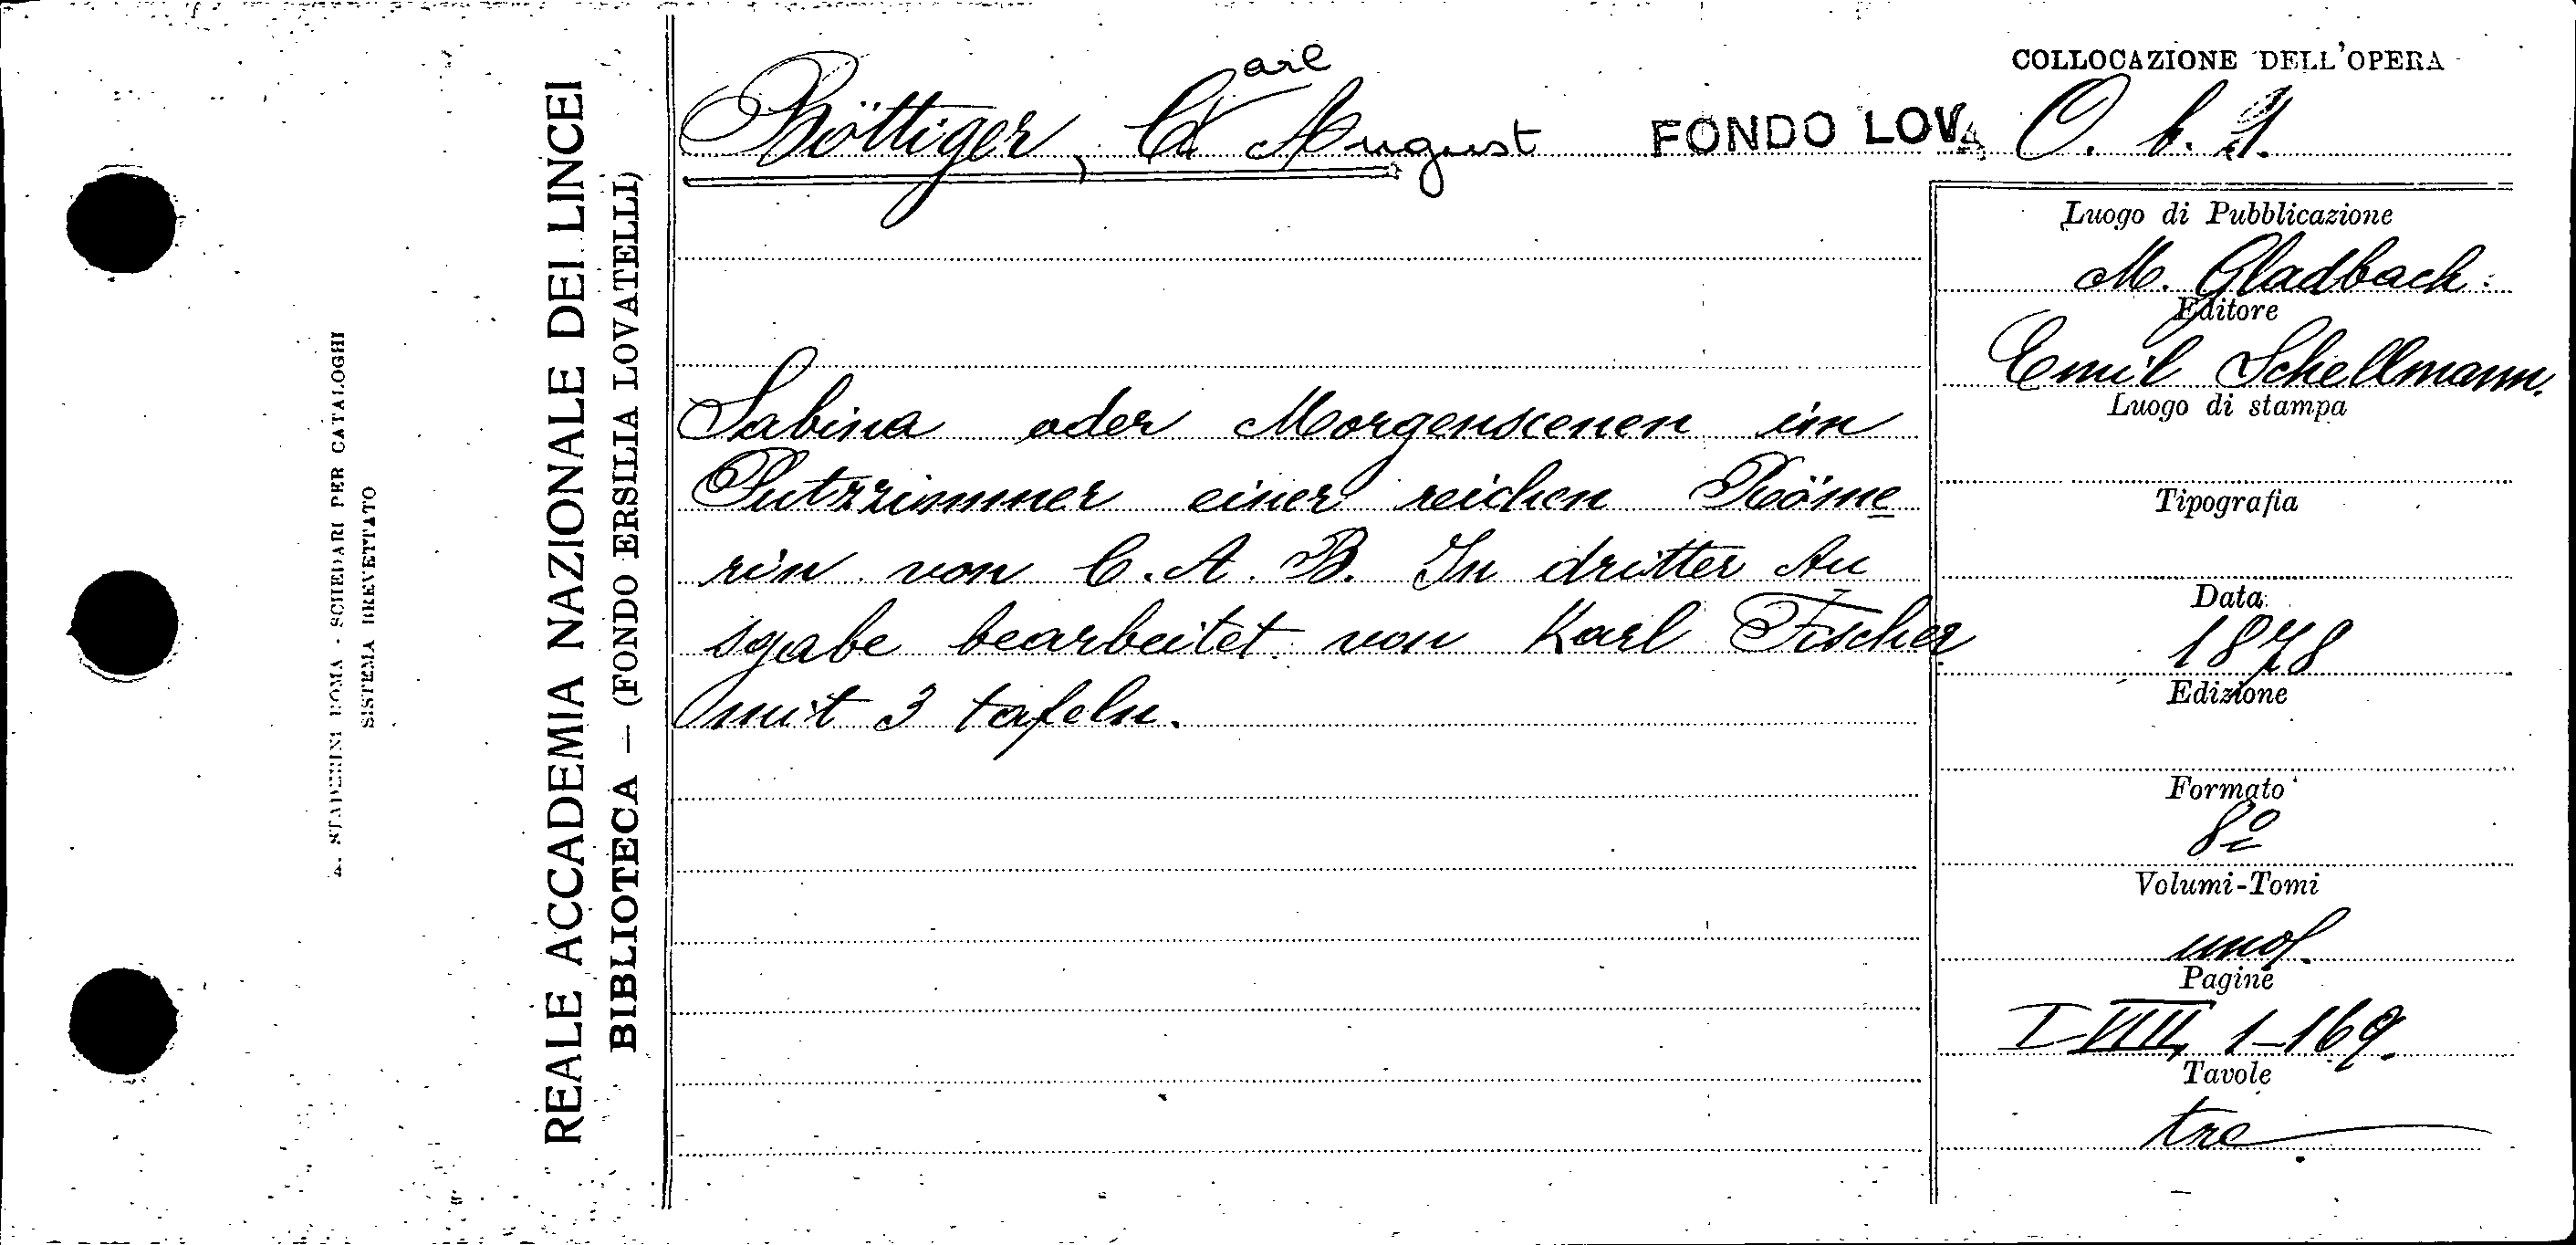 A. STADERINI ROMA - SCHEDARI PER CATALOGHI
SISTEMA BREVETTATO
REALE ACCADEMIA NAZIONALE DEI LINCEI
BIBLIOTECA — (FONDO ERSILIA LOVATELLI)
Böttiger, Carl August
FONDO LOVA
Sabina oder Morgenscenen im
Putzzimmer einer reichen Röme
rin von C. A. B. In dritter Au
sgabe bearbeitet von Karl Fischer
mit 3 tafeln.
COLLOCAZIONE DELL'OPERA
O. b.
Luogo di Pubblicazione
M. Gladbach:
Editore
Emil Schellmann.
Luogo di stampa
Tipografia
Data
1878
Edizione
Formato
8º
Volumi-Tomi
uno.
Pagine
I-VIII, 1-169.
Tavole
tre